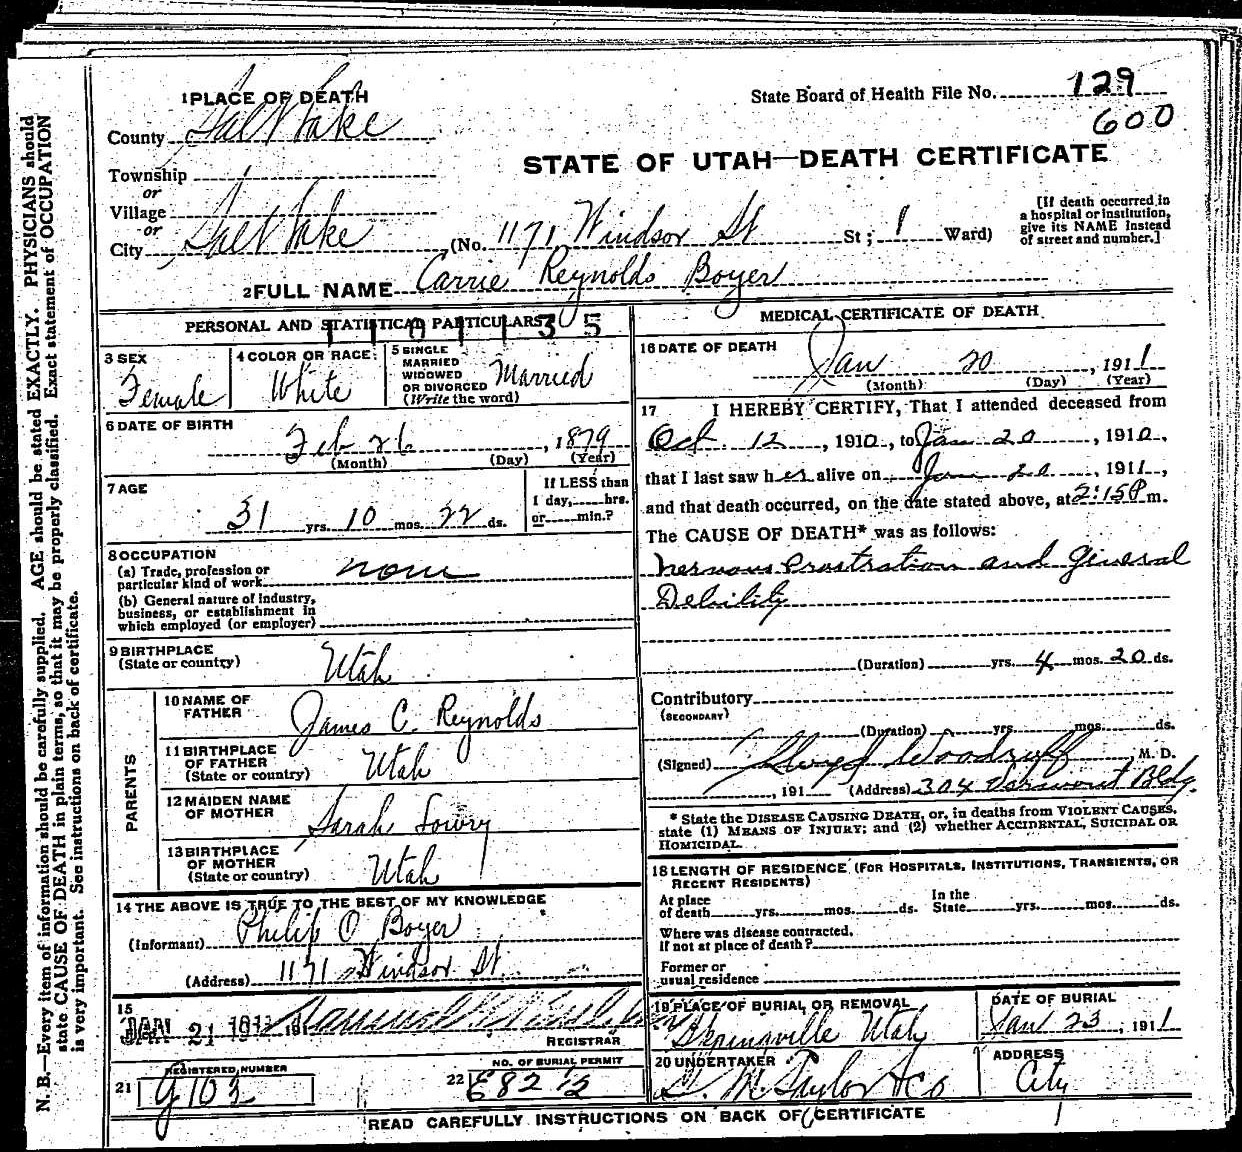 N. B.—Every item of information should be carefully supplied. AGE should be stated EXACTLY. PHYSICIANS should
state CAUSE OF DEATH in plain terms, so that it may be properly classified. Exact statement of OCCUPATION
is very important. See instructions on back of certificate.
1 PLACE OF DEATH
State Board of Health File No. 129
600
County Salt Lake
STATE OF UTAH—DEATH CERTIFICATE
Township
or
Village
or
City Salt Lake (No. 1171 Windsor St St; 1 Ward)
[If death occurred in
a hospital or institution,
give its NAME instead
of street and number.]
2 FULL NAME Carrie Reynolds Boyer
PERSONAL AND STATISTICAL PARTICULARS
3 SEX
Female
4 COLOR OR RACE
White
5 SINGLE
MARRIED
WIDOWED
OR DIVORCED
(Write the word)
Married
6 DATE OF BIRTH
Feb 26, 1879
(Month) (Day) (Year)
7 AGE
31 yrs. 10 mos. 22 ds.
If LESS than
1 day, hrs.
or min.?
8 OCCUPATION
(a) Trade, profession or
particular kind of work none
(b) General nature of industry,
business, or establishment in
which employed (or employer)
9 BIRTHPLACE
(State or country)
Utah
PARENTS
10 NAME OF
FATHER
James C. Reynolds
11 BIRTHPLACE
OF FATHER
(State or country)
Utah
12 MAIDEN NAME
OF MOTHER
Sarah Lowry
13 BIRTHPLACE
OF MOTHER
(State or country)
Utah
14 THE ABOVE IS TRUE TO THE BEST OF MY KNOWLEDGE
(Informant) Philip O Boyer
(Address) 1171 Windsor St
15
JAN 21 191
REGISTRAR
REGISTERED NUMBER
21 G103
NO. OF BURIAL PERMIT
22 E82
MEDICAL CERTIFICATE OF DEATH
16 DATE OF DEATH
Jan 20, 1911
(Month) (Day) (Year)
17 I HEREBY CERTIFY, That I attended deceased from
Oct. 12, 1910, to Jan 20, 1910,
that I last saw her alive on Jan 20, 1911,
and that death occurred, on the date stated above, at 2:15 P m.
The CAUSE OF DEATH* was as follows:
Nervous Prostration and General
Debility
(Duration) yrs. 4 mos. 20 ds.
Contributory
(SECONDARY)
(Duration) yrs. mos. ds.
(Signed) Woodruff M. D.
, 191 (Address) 304 Vermont Bldg.
* State the DISEASE CAUSING DEATH, or, in deaths from VIOLENT CAUSES,
state (1) MEANS OF INJURY; and (2) whether ACCIDENTAL, SUICIDAL OR
HOMICIDAL.
18 LENGTH OF RESIDENCE (FOR HOSPITALS, INSTITUTIONS, TRANSIENTS, OR
RECENT RESIDENTS)
At place
of death yrs. mos. ds.
In the
State yrs. mos. ds.
Where was disease contracted,
if not at place of death?
Former or
usual residence
19 PLACE OF BURIAL OR REMOVAL
Springville Utah
DATE OF BURIAL
Jan 23, 1911
20 UNDERTAKER
S. M. Taylor & Co
ADDRESS
City
READ CAREFULLY INSTRUCTIONS ON BACK OF CERTIFICATE